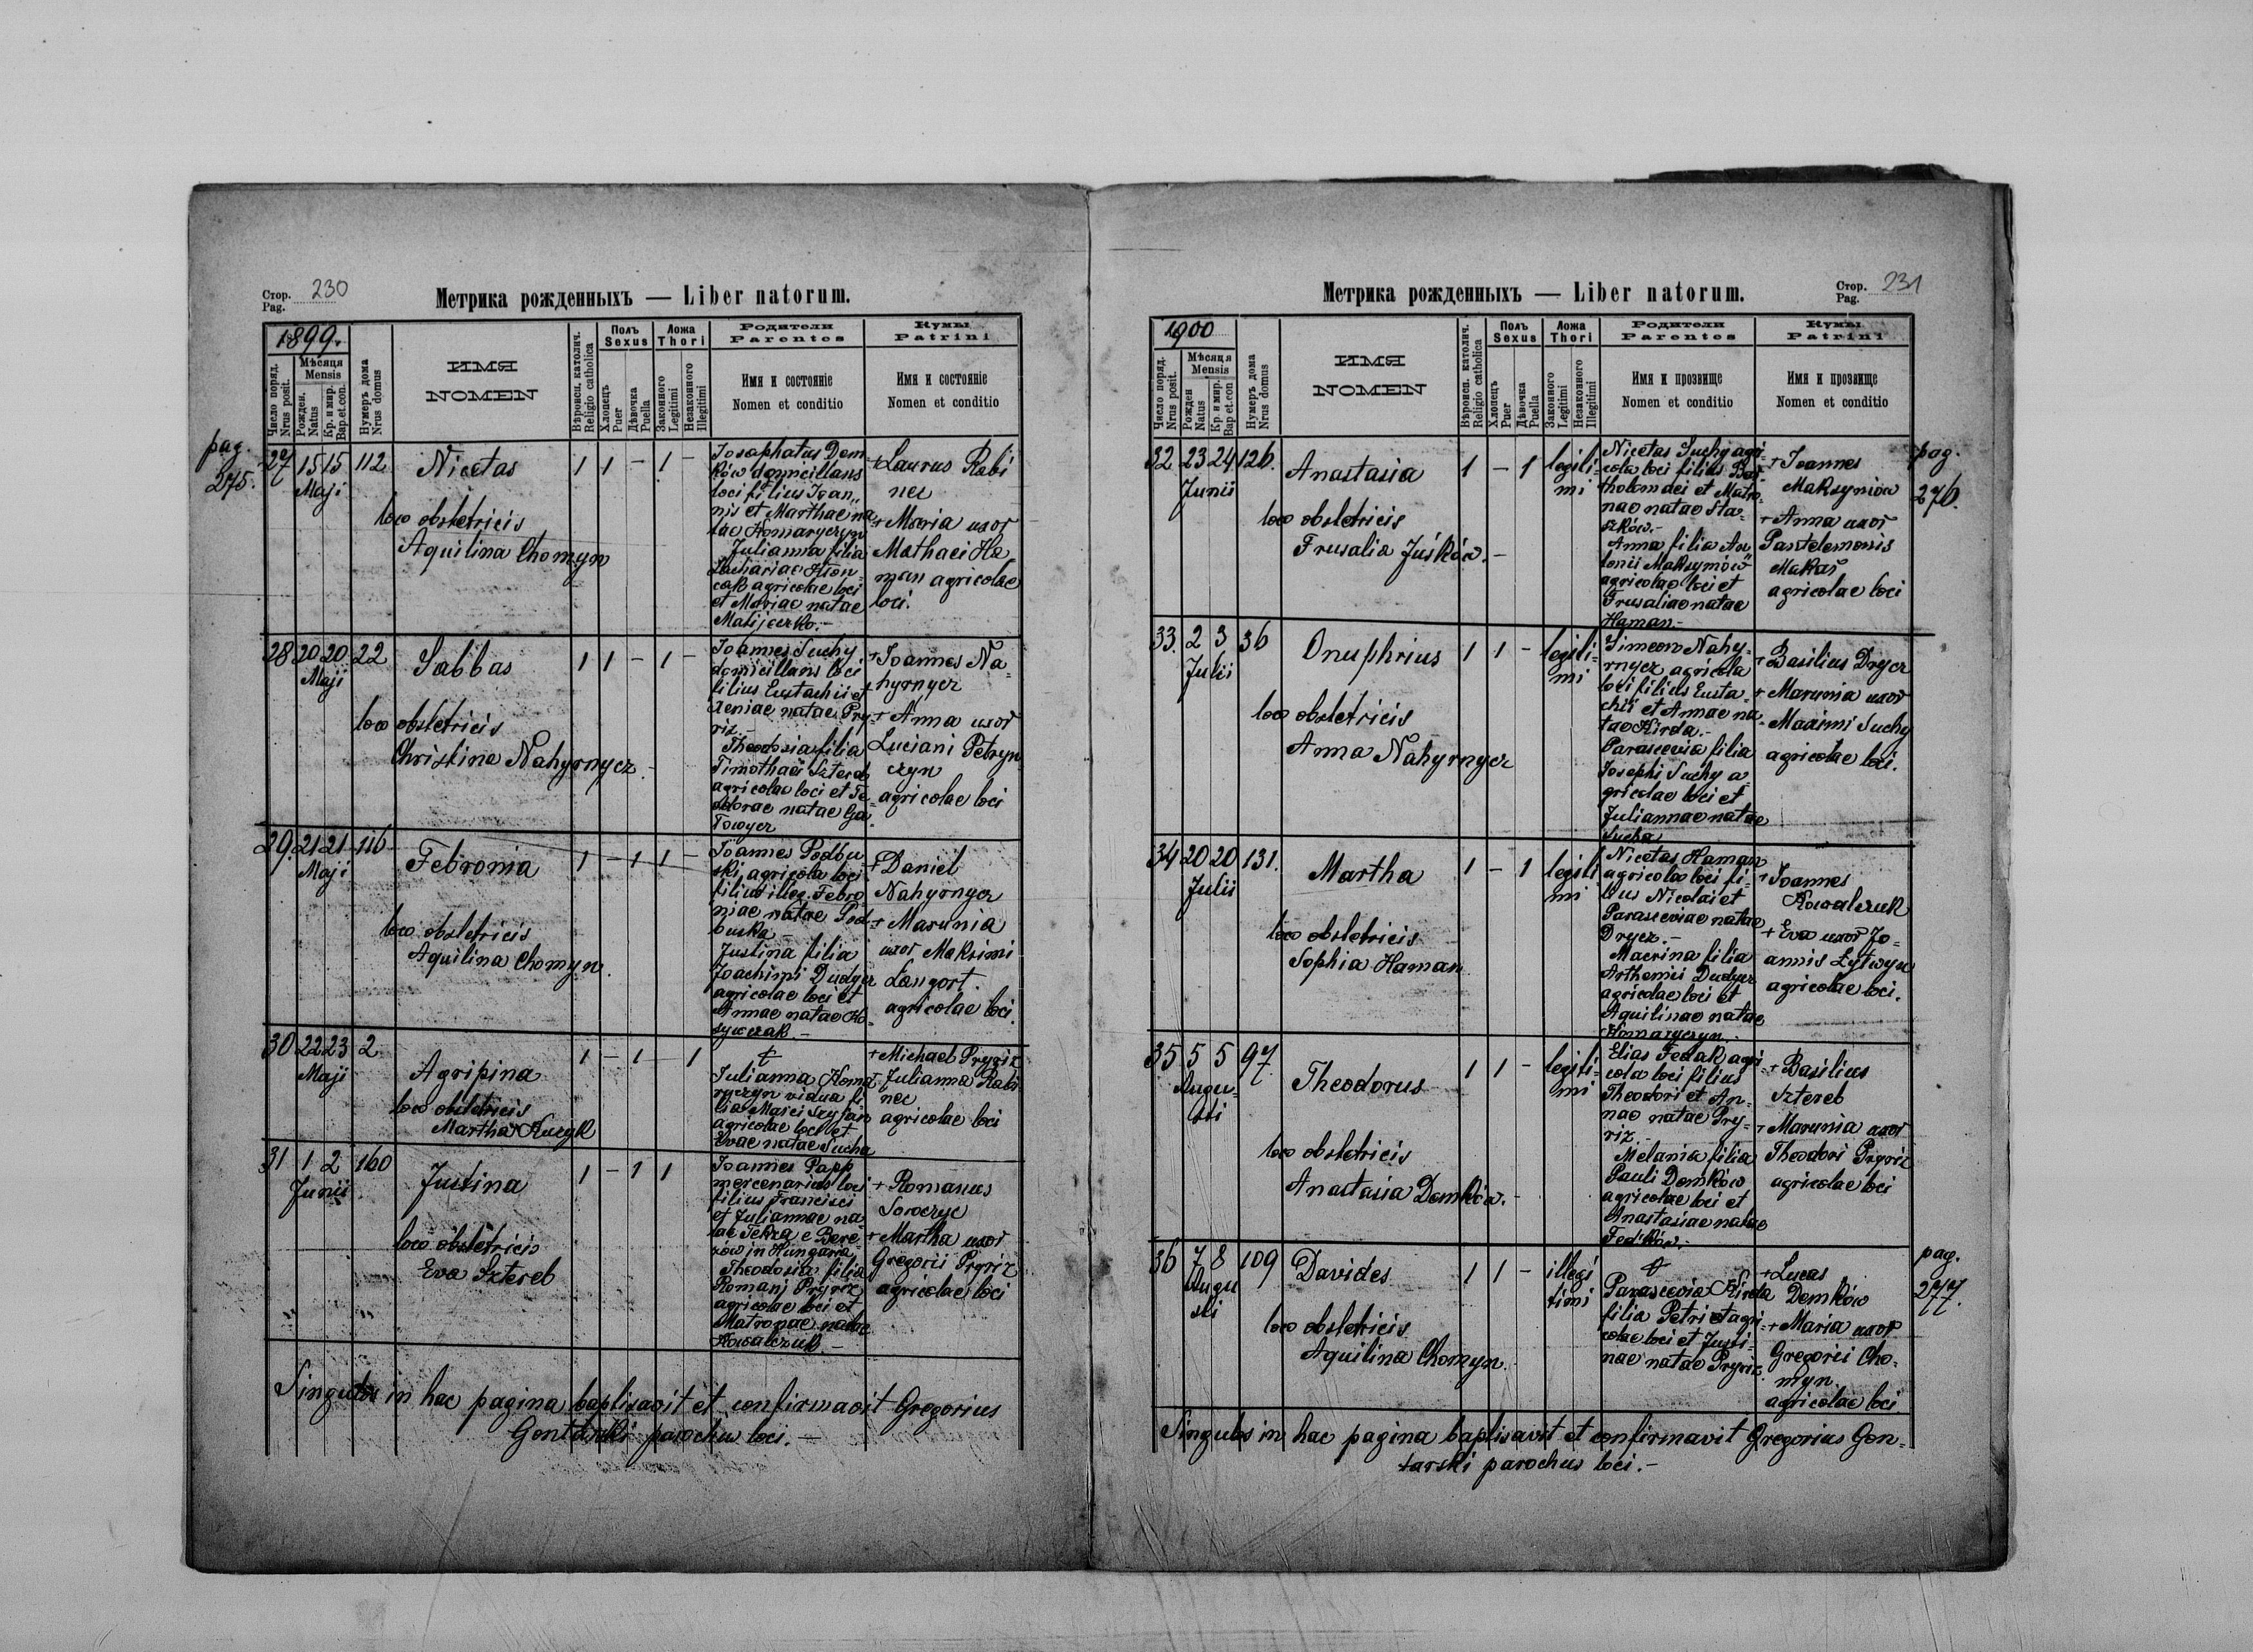 Стор.
Pag.
230
Метрика рожденныхъ — Liber natorum.
1899.
Число поряд.
Nrus posit.
Мѣсяця
Mensis
Рожден.
Natus
Кр. и мир.
Bap.et.con.
Нумеръ дома
Nrus domus
ИМЯ
NOMEN
Вѣроисп. католич.
Religio catholica
Полъ
Sexus
Хлопецъ
Puer
Дѣвочка
Puella
Ложа
Thori
Законного
Legitimi
Незаконного
Illegitimi
Родители
Parentes
Имя и состояніе
Nomen et conditio
Кумы
Patrini
Имя и состояніе
Nomen et conditio
pag.
275.
27 15 15 112
Maji
Nicetas
1 1 – 1 –
loco obstetricis
Aquilina Chomyn
Josaphatus Dem
ków domicillans
loci filius Joan„
nis et Marthae na
tae Komaryczyn
Julianna filia
Zachariae Kion-
cak agricolae loci
et Mariae natae
Matijczko.-
+ Laurus Rabi
nec
+ Maria uxor
Mathaei Ha
man agricolae
loci.
28 20 20 22
Maji
Sabbas
1 1 – 1 –
loco obstetricis
Christina Nahyrnycz.-
Joannes Suchy
domicillans loci
filius Eustachii et
Xeniae natae Pry-
riz.-
Theodosia filia
Timothaei Sztereb
agricolae loci et Te-
odorae natae Ga
+ Joannes Na-
hyrnycz
+ Anna uxor
Luciani Petryn
czyn
agricolae loci
29. 21 21 116
Maji
Febronia
1 – 1 1 –
loco obstetricis
Aquilina Chomyn.
Joannes Podbu
ski, agricola loci
filius illeg. Febro
niae natae Pod-
buska –
Justina filia
Joachimi Dudycz
agricolae loci et
Annae natae Ko-
+ Daniel
Nahyrnycz
+ Marunia
uxor Maksimi
Langort.
agricolae loci.
30 22 23 2
Maji
Agripina
1 – 1 1
loco obstetricis
Martha Kuzyk
Julianna Koma
ryczyn vidua fi
lia Marci
agricolae loci et
Evae natae Sucha
+ Michael Pryriz
+ Julianna Rabi
nec
agricolae loci
31 1 2 160
Junii
Justina
1 – 1 1
loco obstetricis
Eva Sztereb
Joannes Papp
mercenarius loci
filius Francisci
et Juliannae na
tae Tekza e Bere
zów in Hungaria
Theodosia filia
Romani Pryriz
agricolae loci et
Matronae natae
Kowalczuk.-
+ Romanus
Sowczyc
+ Martha uxor
Gregorii Pryriz
agricolae loci
Singulos in hac pagina baptisavit et confirmavit Gregorius
Gontarski parochus loci.-
Метрика рожденныхъ — Liber natorum.
Стор.
Pag.
231
1900
Число поряд.
Nrus posit.
Мѣсяця
Mensis
Рожден
Natus
Кр. и мир.
Bap et.con
Нумеръ дома
Nrus domus
ИМЯ
NOMEN
Вѣроисп. католич.
Religio catholica
Полъ
Sexus
Хлопецъ
Puer
Дѣвочка
Puella
Ложа
Thori
Законного
Legitimi
Незаконного
Illegitimi
Родители
Parentes
Имя и прозвище
Nomen et conditio
Кумы
Patrini
Имя и прозвище
Nomen et conditio
32 23 24 126.
Junii
Anastasia
1 – 1 legiti-
mi
loco obstetricis
Frusalia Juśków.-
Nicetas Suchy agri-
cola loci filius Bar-
tholomaei et Matro-
nae natae Sta-
szków.-
Anna filia An
tonii Maksymów
agricolae loci et
Frusaliae natae
Haman-
+ Joannes
Maksymiów
+ Anna uxor
Pantelemonis
Makar
agricolae loci
pag.
276.
33. 2 3 36
Julii
Onuphrius
1 1 – legiti-
mi
loco obstetricis
Anna Nahyrnycz
Simeon Nahy-
rnycz agricola
loci filius Eusta-
chii et Annae na
tae Kirda.-
Parascevia filia
Josephi Suchy a-
gricolae loci et
Juliannae natae
Sucha
+ Basilius Drycz
+ Marunia uxor
Maximi Suchy
agricolae loci.
34 20 20 131.
Julii
Martha
1 – 1 legiti
mi
loco obstetricis
Sophia Haman
Nicetas Haman
agricola loci fi-
lius Nicolai et
Parasceviae natae
Drycz.-
Macrina filia
Arthemii Dudycz
agricolae loci et
Aquilinae natae
Komaryczyn.-
+ Joannes
Kowalczuk
+ Eva uxor Jo-
annis Lytwyn
agricolae loci.
35 5 5 97.
Augu-
sti
Theodorus
1 1 – legiti-
mi
loco obstetricis
Anastasia Demków.-
Elias Fedak agri
cola loci filius
Theodori et An-
nae natae Pry-
riz.-
Melania filia
Pauli Demków
agricolae loci et
Anastasiae natae
Fed'ków.-
+ Basilius
Sztereb
+ Marunia uxor
Theodori Pryriz
agricolae loci
36 7 8 109
Augu
sti
Davides
1 1 – illegi
timi
loco obstetricis
Aquilina Chomyn.
Parascevia Kirda
filia Petri et agri
colae loci et Justi-
nae natae Pryriz.
+ Lucas
Demków
+ Maria uxor
Gregorii Cho-
myn.
agricolae loci
pag.
277.
Singulos in hac pagina baptisavit et confirmavit Gregorius Gon-
tarski parochus loci.-